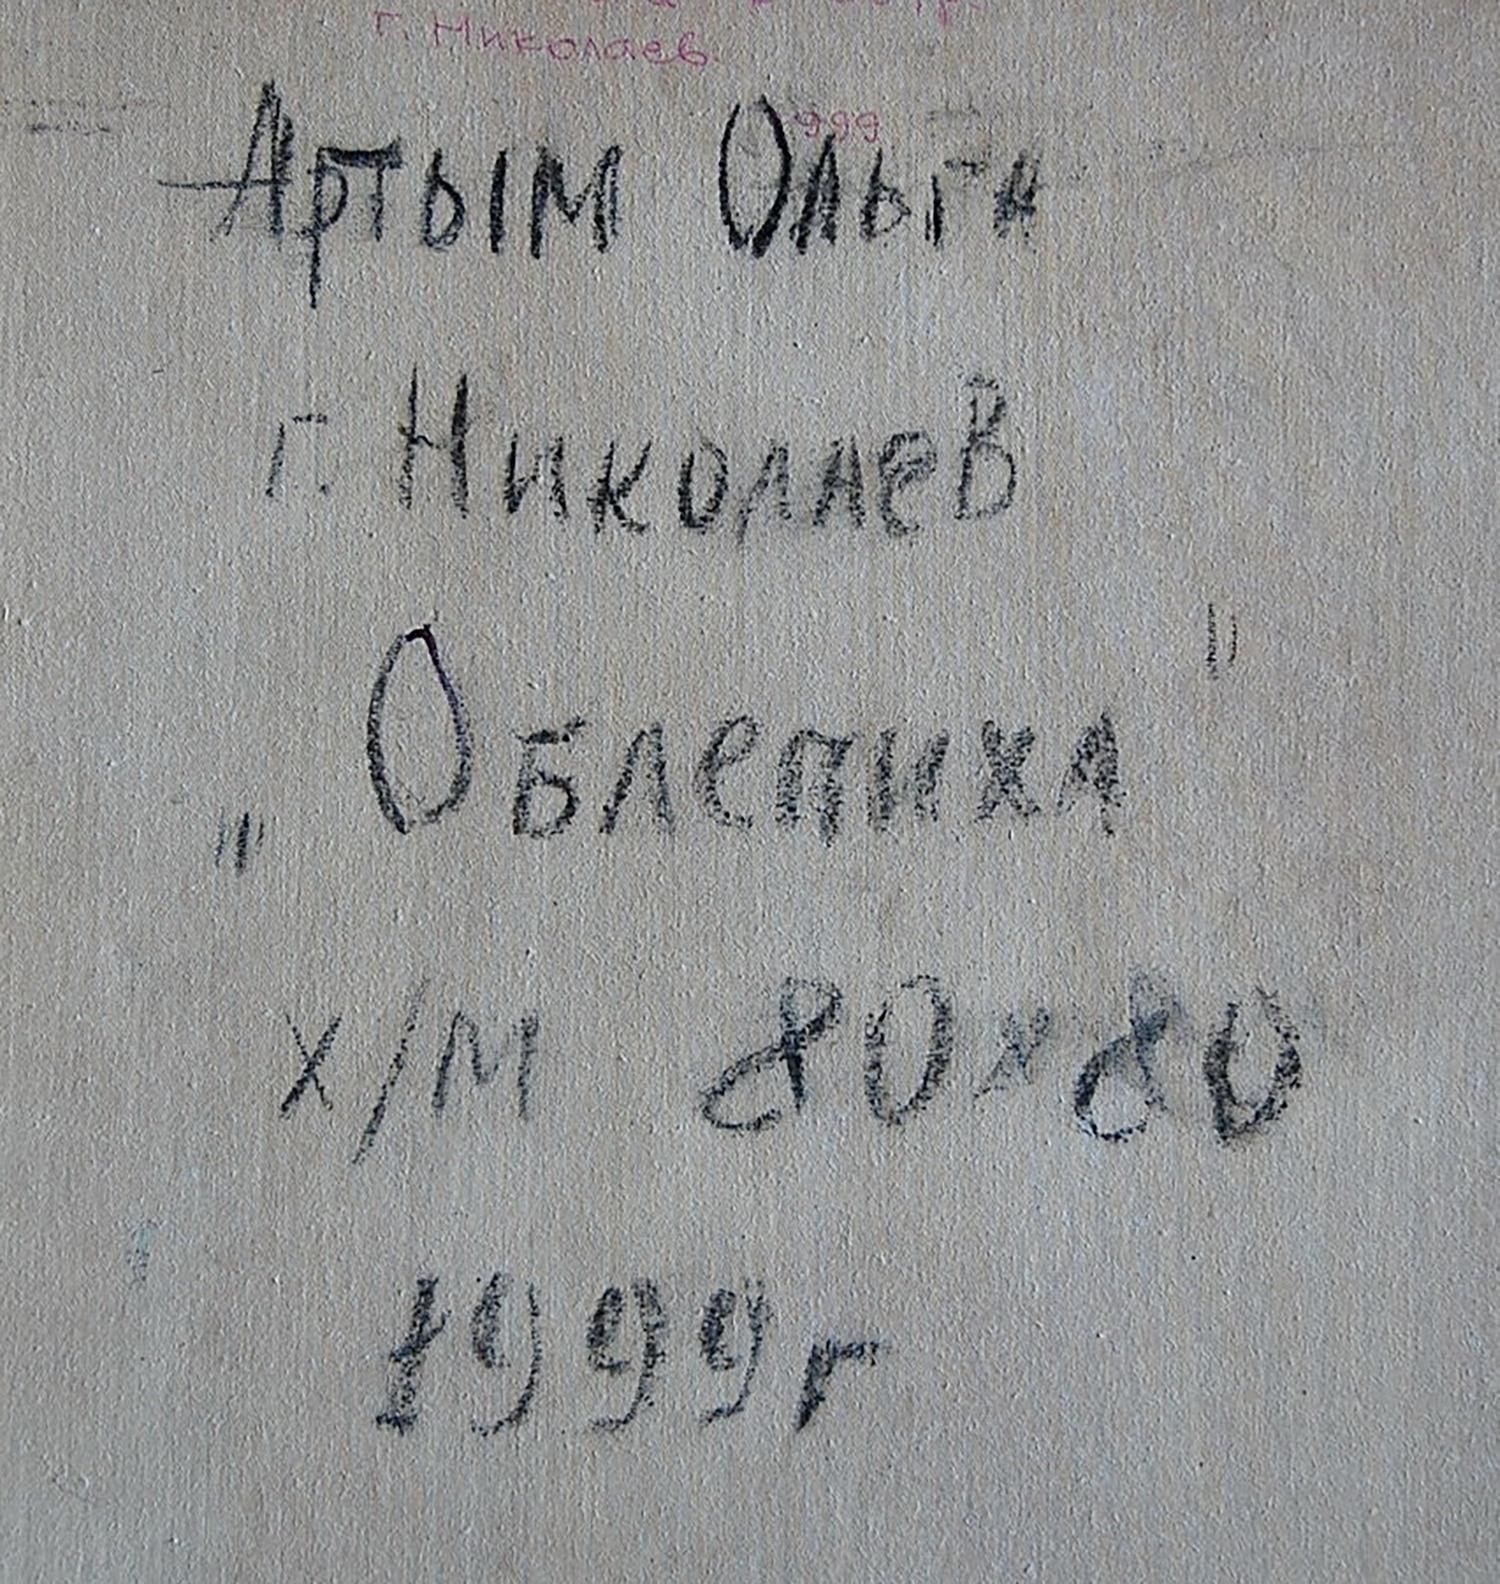 г. Николаев
999
Артым Ольга
г. Николаев
„Облепиха"
х/м 80×80
1999г